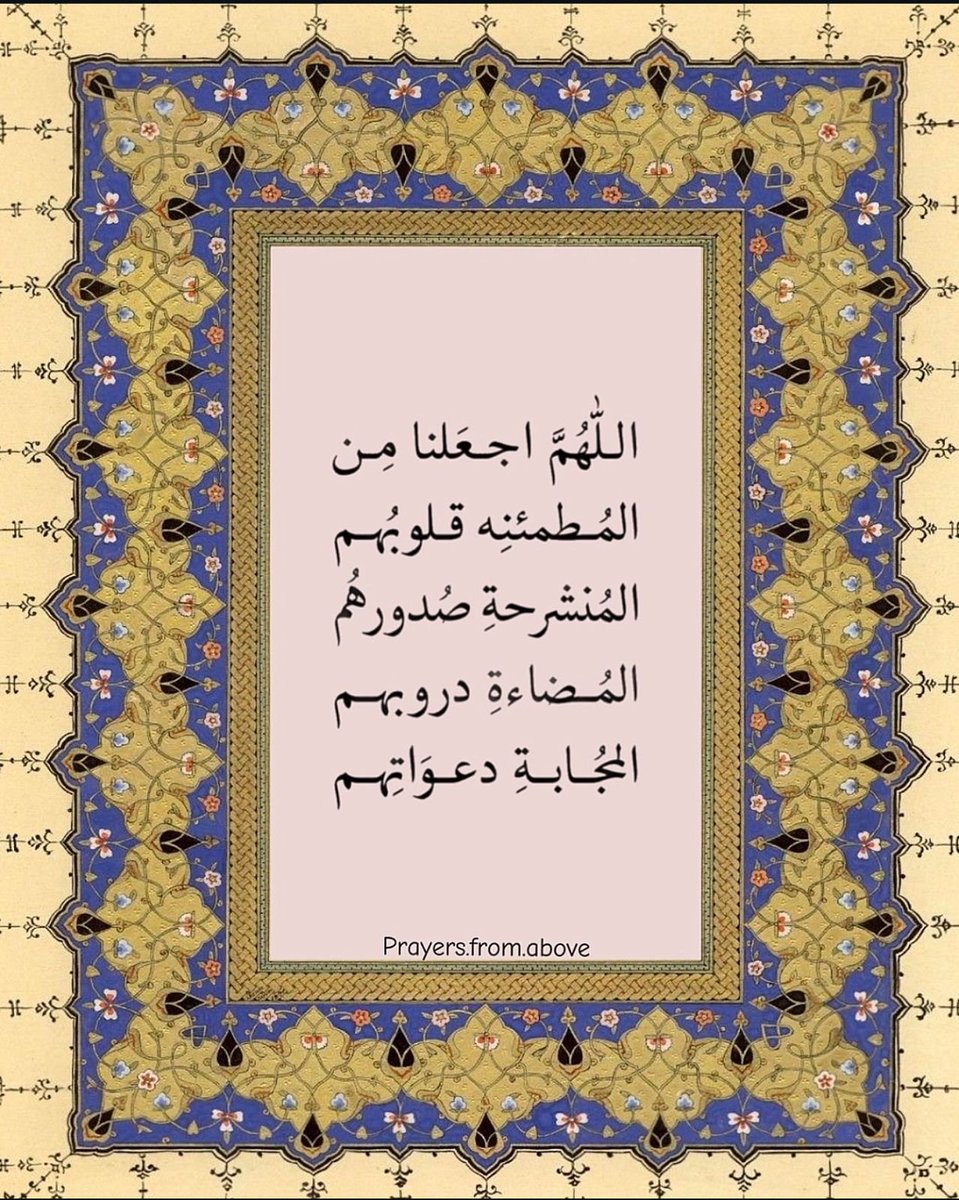 اللّٰهُمَّ اجعَلنا مِن
المُطمئنِه قلوبُهم
المُنشرحةِ صُدورهُم
المُضاءةِ دروبهم
المجُابةِ دعوَاتِهم
Prayers.from.above